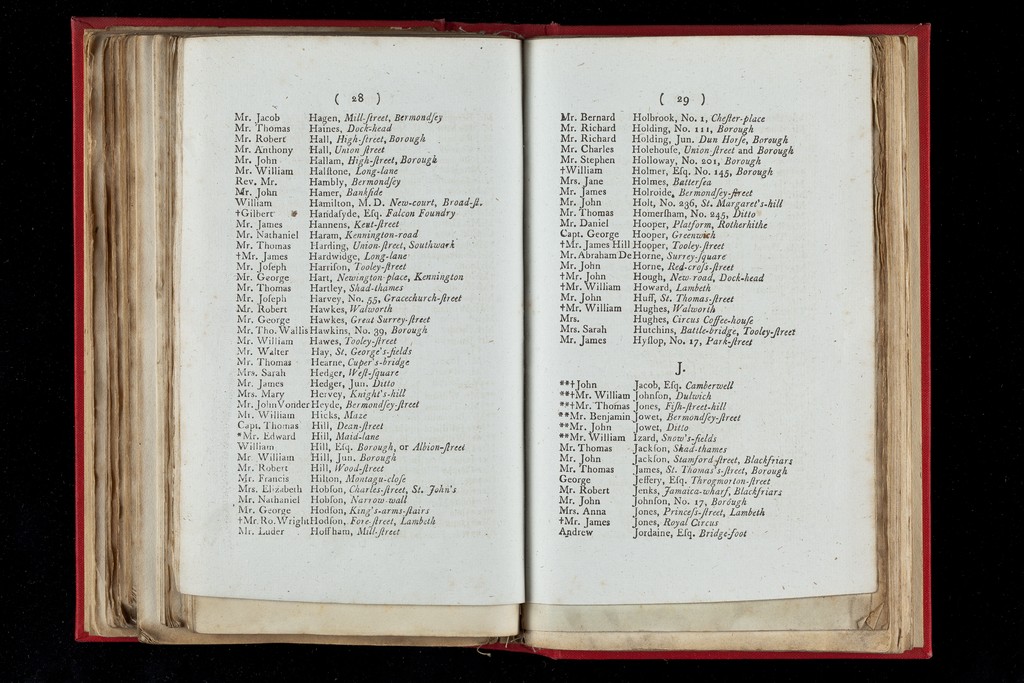 ( 28 )
Mr. Jacob Hagen, Mill-ſtreet, Bermondſey
Mr. Thomas Haines, Dock-head
Mr. Robert Hall, High-ſtreet, Borough
Mr. Anthony Hall, Union ſtreet
Mr. John Hallam, High-ſtreet, Borough
Mr. William Halſtone, Long-lane
Rev. Mr. Hambly, Bermondſey
Mr. John Hamer, Bankſide
William Hamilton, M. D. New-court, Broad-ſt.
†Gilbert Handaſyde, Eſq. Falcon Foundry
Mr. James Hannens, Kent-ſtreet
Mr. Nathaniel Haram, Kennington-road
Mr. Thomas Harding, Union-ſtreet, Southwark
†Mr. James Hardwidge, Long-lane
Mr. Joſeph Harriſon, Tooley-ſtreet
Mr. George Hart, Newington-place, Kennington
Mr. Thomas Hartley, Shad-thames
Mr. Joſeph Harvey, No. 55, Gracechurch-ſtreet
Mr. Robert Hawkes, Walworth
Mr. George Hawkes, Great Surrey-ſtreet
Mr. Tho. Wallis Hawkins, No. 39, Borough
Mr. William Hawes, Tooley-ſtreet
Mr. Walter Hay, St. George's-fields
Mr. Thomas Hearne, Cuper's-bridge
Mrs. Sarah Hedger, Weſt-ſquare
Mr. James Hedger, Jun. Ditto
Mrs. Mary Hervey, Knight's-hill
Mr. John Vonder Heyde, Bermondſey-ſtreet
Mr. William Hicks, Maze
Capt. Thomas Hill, Dean-ſtreet
*Mr. Edward Hill, Maid-lane
William Hill, Eſq. Borough, or Albion-ſtreet
Mr William Hill, Jun. Borough
Mr. Robert Hill, Wood-ſtreet
Mr. Francis Hilton, Montagu-cloſe
Mrs. Elizabeth Hobſon, Charles-ſtreet, St. John's
Mr. Nathaniel Hobſon, Narrow-wall
Mr. George Hodſon, King's-arms-ſtairs
†Mr. Ro. Wright Hodſon, Fore-ſtreet, Lambeth
Mr. Luder Hoffham, Mill-ſtreet
( 29 )
Mr. Bernard Holbrook, No. 1, Cheſter-place
Mr. Richard Holding, No. 111, Borough
Mr. Richard Holding, Jun. Dun Horſe, Borough
Mr. Charles Holehouſe, Union-ſtreet and Borough
Mr. Stephen Holloway, No. 201, Borough
†William Holmer, Eſq. No. 145, Borough
Mrs. Jane Holmes, Batterſea
Mr. James Holroide, Bermondſey-ſtreet
Mr. John Holt, No. 296, St. Margaret's-hill
Mr. Thomas Homerſham, No. 245, Ditto
Mr. Daniel Hooper, Platform, Rotherhithe
Capt. George Hooper, Greenwich
†Mr. James Hill Hooper, Tooley-ſtreet
Mr. Abraham De Horne, Surrey-ſquare
Mr. John Horne, Red-croſs-ſtreet
†Mr. John Hough, New-road, Dock-head
†Mr. William Howard, Lambeth
Mr. John Huff, St. Thomas-ſtreet
†Mr. William Hughes, Walworth
Mrs. Hughes, Circus Coffee-houſe
Mrs. Sarah Hutchins, Battle-bridge, Tooley-ſtreet
Mr. James Hyſlop, No. 17, Park-ſtreet
J.
**†John Jacob, Eſq. Camberwell
**†Mr. William Johnſon, Dulwich
**†Mr. Thomas Jones, Fiſh-ſtreet-hill
**Mr. Benjamin Jowet, Bermondſey-ſtreet
**Mr. John Jowet, Ditto
**Mr. William Izard, Snow's-fields
Mr. Thomas Jackſon, Shad-thames
Mr. John Jackſon, Stamford-ſtreet, Blackfriars
Mr. Thomas James, St. Thomas's-ſtreet, Borough
George Jeffery, Eſq. Throgmorton-ſtreet
Mr. Robert Jenks, Jamaica-wharf, Blackfriars
Mr. John Johnſon, No. 17, Borough
Mrs. Anna Jones, Princeſs-ſtreet, Lambeth
†Mr. James Jones, Royal Circus
Andrew Jordaine, Eſq. Bridge-foot